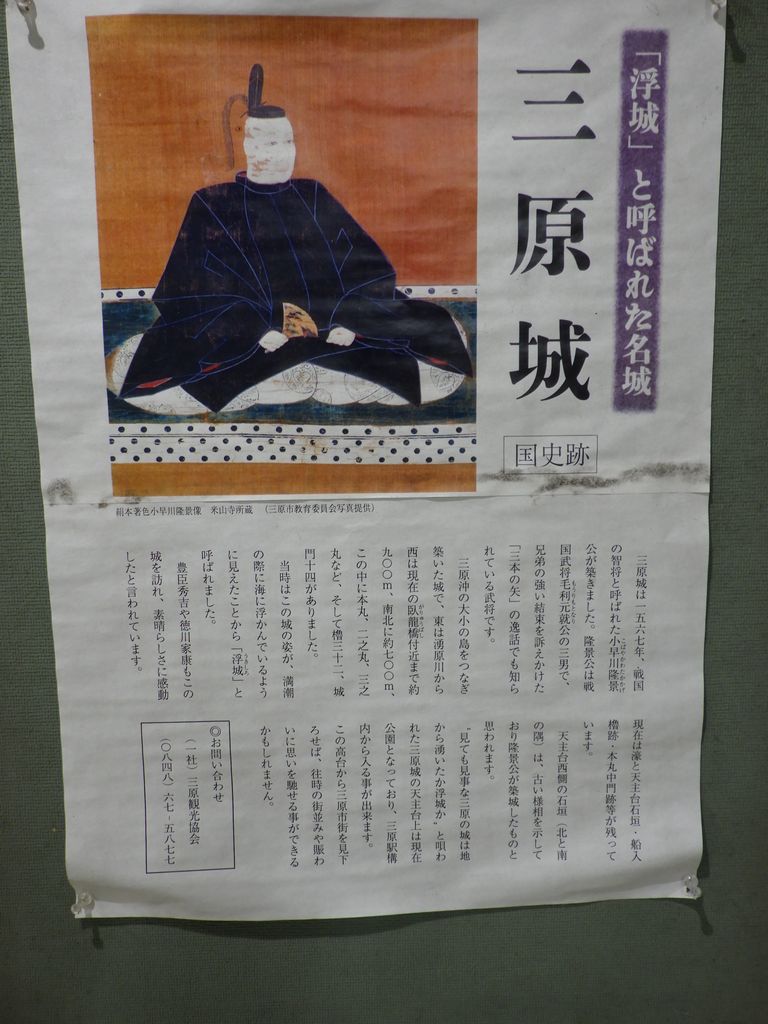 「浮城」と呼ばれた名城
三原城
国史跡
絹本著色小早川隆景像　米山寺所蔵　（三原市教育委員会写真提供）
三原城は一五六七年、戦国
の智将と呼ばれた小早川隆景
こばやかわたかかげ
公が築きました。隆景公は戦
国武将毛利元就公の三男で、
もうりもとなり
兄弟の強い結束を訴えかけた
「三本の矢」の逸話でも知ら
れている武将です。
三原沖の大小の島をつなぎ
築いた城で、東は湧原川から
西は現在の臥龍橋付近まで約
がりゅうばし
九〇〇ｍ、南北に約七〇〇ｍ、
この中に本丸、二之丸、三之
丸など、そして櫓三十二、城
門十四がありました。
当時はこの城の姿が、満潮
の際に海に浮かんでいるよう
に見えたことから「浮城」と
うきしろ
呼ばれました。
豊臣秀吉や徳川家康もこの
城を訪れ、素晴らしさに感動
したと言われています。
現在は濠と天主台石垣・船入
櫓跡・本丸中門跡等が残って
います。
天主台西側の石垣（北と南
の隅）は、古い様相を示して
おり隆景公が築城したものと
思われます。
“見ても見事な三原の城は地
から湧いたか浮城か”と唄わ
れた三原城の天主台上は現在
公園となっており、三原駅構
内から入る事が出来ます。
この高台から三原市街を見下
ろせば、往時の街並みや賑わ
いに思いを馳せる事ができる
かもしれません。
◎お問い合わせ
（一社）三原観光協会
（〇八四八）六七－五八七七